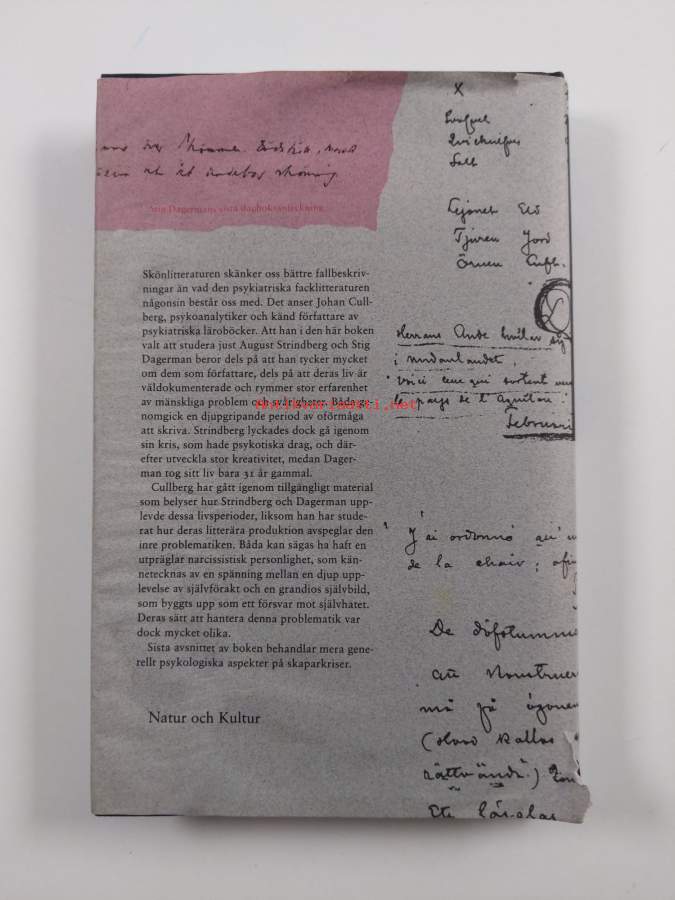 X
Svafvel
Qvicksilfver
Salt
Lejonet Eld
Tjuren Jord
Örnen Luft.
Stig Dagermans sista dagboksanteckning.
Skönlitteraturen skänker oss bättre fallbeskriv-
ningar än vad den psykiatriska facklitteraturen
någonsin består oss med. Det anser Johan Cull-
berg, psykoanalytiker och känd författare av
psykiatriska läroböcker. Att han i den här boken
valt att studera just August Strindberg och Stig
Dagerman beror dels på att han tycker mycket
om dem som författare, dels på att deras liv är
väldokumenterade och rymmer stor erfarenhet
av mänskliga problem och svårigheter. Båda ge-
nomgick en djupgripande period av oförmåga
att skriva. Strindberg lyckades dock gå igenom
sin kris, som hade psykotiska drag, och där-
efter utveckla stor kreativitet, medan Dager-
man tog sitt liv bara 31 år gammal.
Cullberg har gått igenom tillgängligt material
som belyser hur Strindberg och Dagerman upp-
levde dessa livsperioder, liksom han har stude-
rat hur deras litterära produktion avspeglar den
inre problematiken. Båda kan sägas ha haft en
utpräglar narcissistisk personlighet, som kän-
netecknas av en spänning mellan en djup upp-
levelse av självförakt och en grandios självbild,
som byggts upp som ett försvar mot självhatet.
Deras sätt att hantera denna problematik var
dock mycket olika.
Sista avsnittet av boken behandlar mera gene-
rellt psykologiska aspekter på skaparkriser.
Natur och Kultur
antikvariaatti.net
Herrans Ande hvilar
i nordanlandet.
Voici ceux qui sortent
le pays de l'Aquilon
Februari
J'ai ordonné
de la chair; afin
De döfstumme
att konstruer
må på ögonen
(Hvad kallas
rättvändt.)